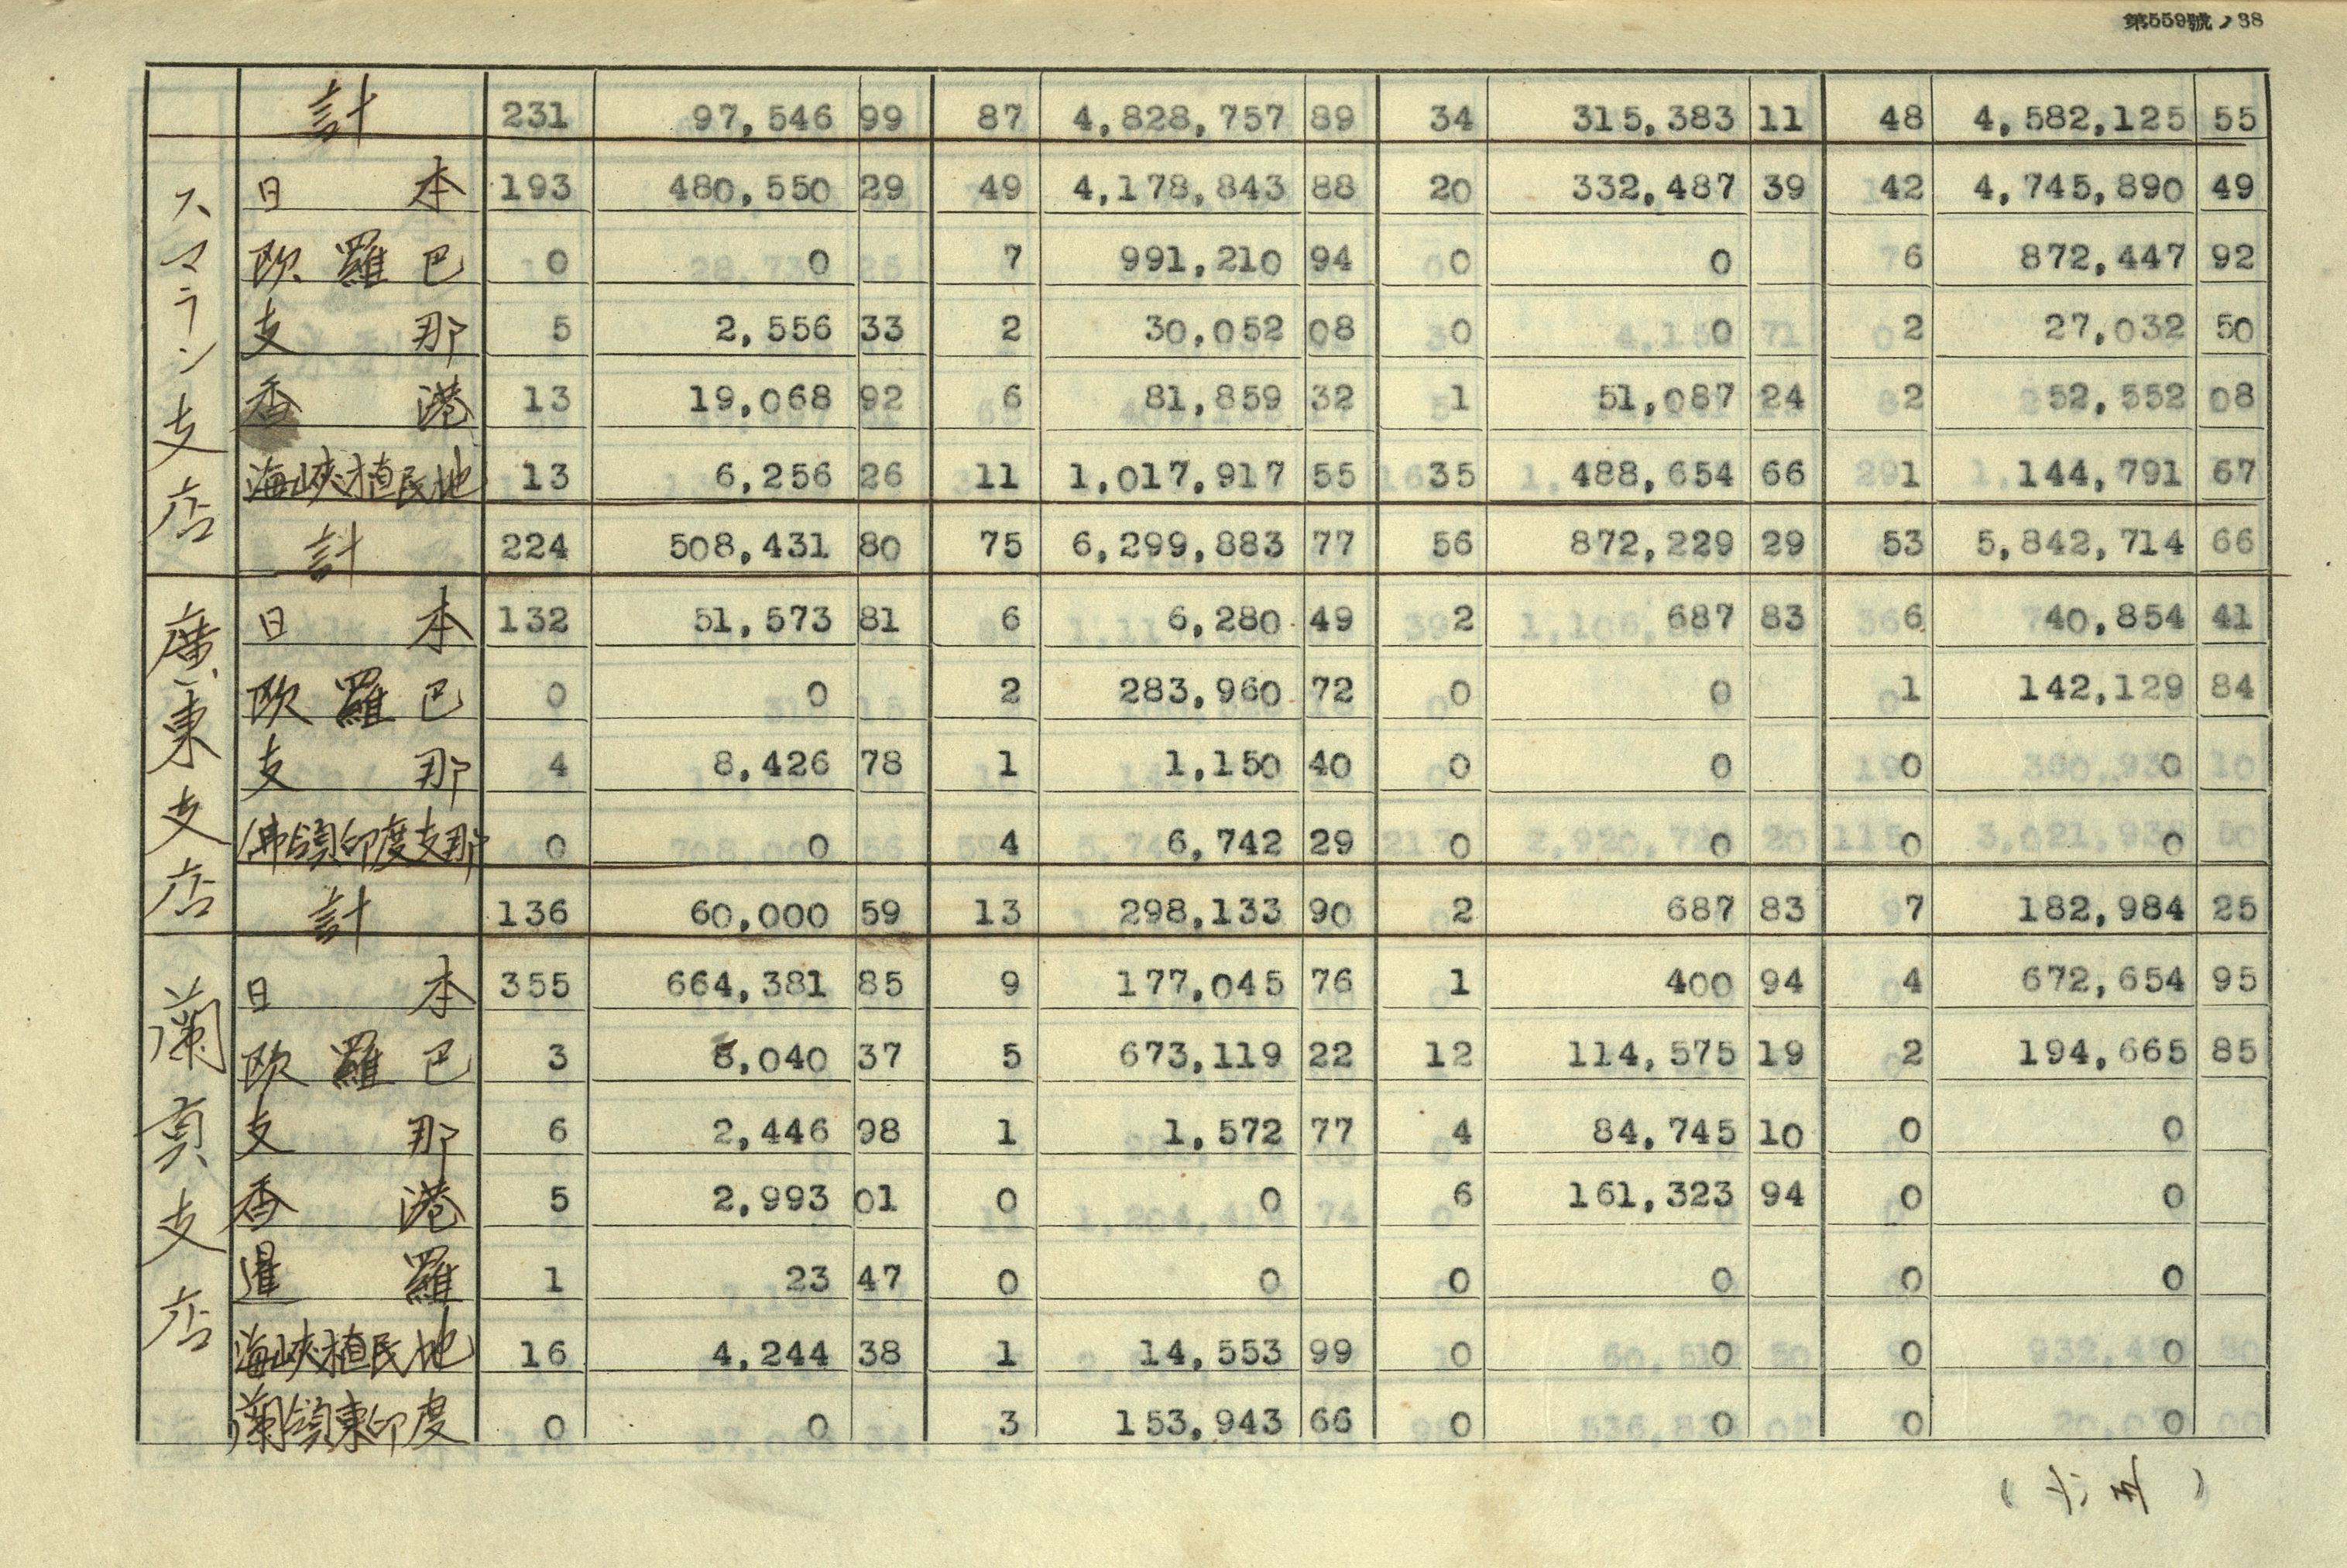 第559號ノ38
計 231 97,546 99 87 4,828,757 89 34 315,383 11 48 4,582,125 55
スマラン支店
日本 193 480,550 29 49 4,178,843 88 20 332,487 39 42 4,745,890 49
欧羅巴 0 0 7 991,210 94 0 0 6 872,447 92
支那 5 2,556 33 2 30,052 08 0 0 2 27,032 50
香港 13 19,068 92 6 81,859 32 1 51,087 24 2 52,552 08
海峡植民地 13 6,256 26 11 1,017,917 55 35 488,654 66 1 144,791 67
計 224 508,431 80 75 6,299,883 77 56 872,229 29 53 5,842,714 66
廣東支店
日本 132 51,573 81 6 6,280 49 2 687 83 6 40,854 41
欧羅巴 0 0 2 283,960 72 0 0 1 142,129 84
支那 4 8,426 78 1 1,150 40 0 0 0 0
佛領印度支那 0 0 4 6,742 29 0 0 0 0
計 136 60,000 59 13 298,133 90 2 687 83 7 182,984 25
蘭貢支店
日本 355 664,381 85 9 177,045 76 1 400 94 4 672,654 95
欧羅巴 3 8,040 37 5 673,119 22 12 114,575 19 2 194,665 85
支那 6 2,446 98 1 1,572 77 4 84,745 10 0 0
香港 5 2,993 01 0 0 6 161,323 94 0 0
暹羅 1 23 47 0 0 0 0 0 0
海峡植民地 16 4,244 38 1 14,553 99 0 0 0 0
蘭領東印度 0 0 3 153,943 66 0 0 0 0